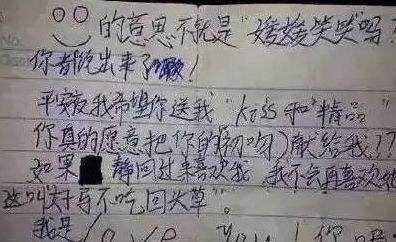 的意思不就是"媛媛笑笑"吗?
你都说出来了!
平安夜我希望你送我"kiss和"精品"
你真的愿意把你的初吻)献给我??
如果 静回过来喜欢我 我不会再喜欢他
这叫好马不吃回头草。
我是 love you! 你